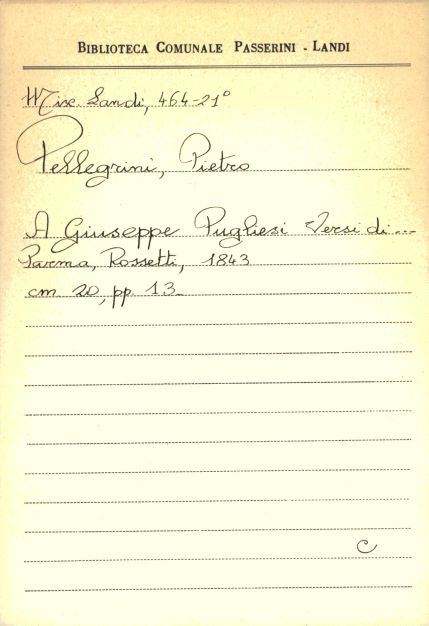 BIBLIOTECA COMUNALE PASSERINI - LANDI
Misc. Landi, 464-21°
Pellegrini, Pietro
A Giuseppe Pugliesi Versi di ...
Parma, Rossetti, 1843
cm 20, pp. 13
C